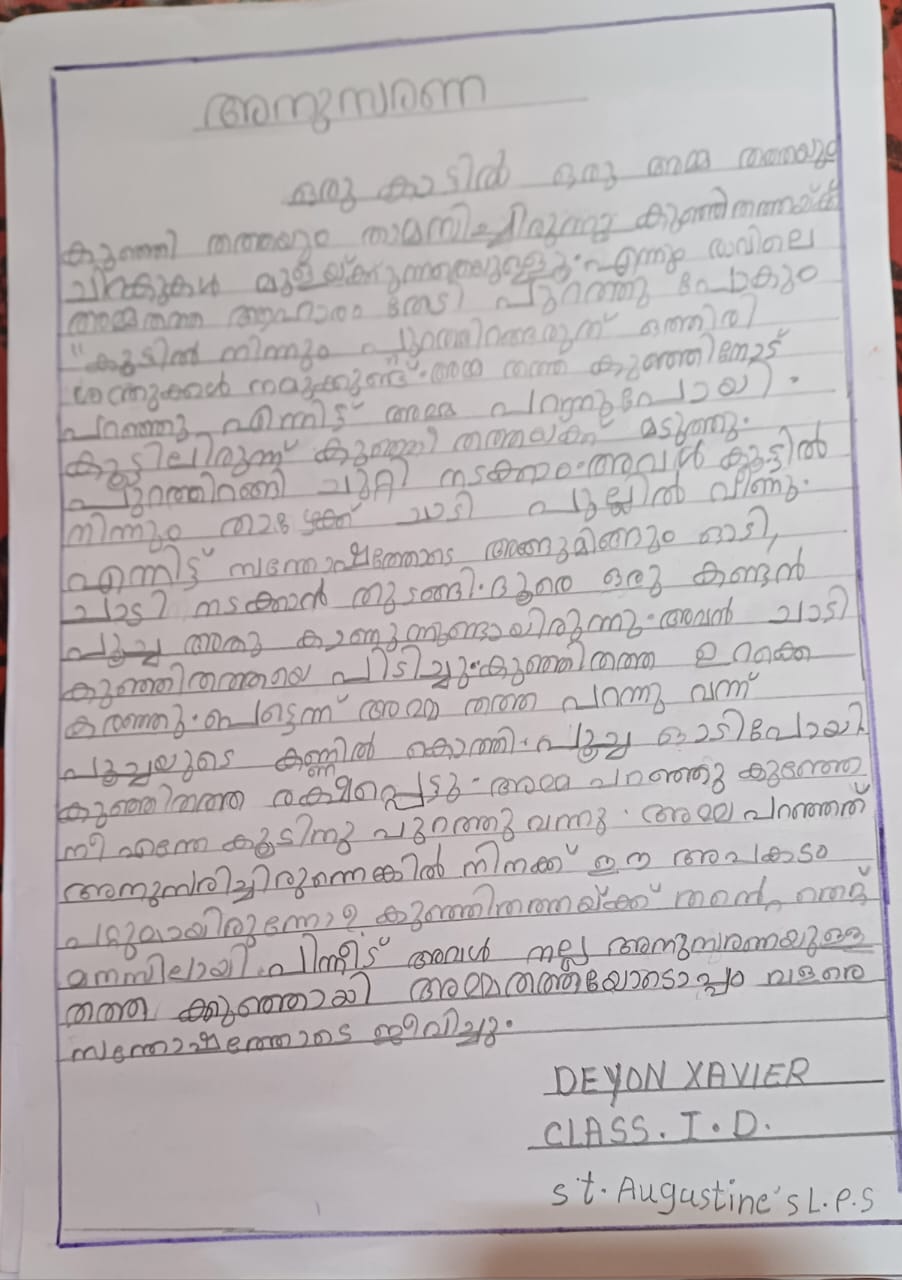 അനുസരണ
ഒരു കാട്ടിൽ ഒരു അമ്മ തത്തയും
കുഞ്ഞി തത്തയും താമസിച്ചിരുന്നു കുഞ്ഞിതത്തയ്ക്ക്
ചിറകുകൾ മുളയ്ക്കുന്നതേയുള്ളു. എന്നും രാവിലെ
അമ്മതത്ത ആഹാരം തേടി പുറത്തു പോകും
"കൂട്ടിൽ നിന്നും പുറത്തിറങ്ങരുത് ഒത്തിരി
ശത്രുക്കൾ നമുക്കുണ്ട്". അമ്മ തന്റെ കുഞ്ഞിനോട്
പറഞ്ഞു എന്നിട്ട് അമ്മ പറന്നുപോയി.
കൂട്ടിലിരുന്ന് കുഞ്ഞി തത്തയ്ക്ക് മടുത്തു.
പുറത്തിറങ്ങി ചുറ്റി നടക്കാം. അവൾ കൂട്ടിൽ
നിന്നും താഴേക്ക് ചാടി പുല്ലിൽ വീണു.
എന്നിട്ട് സന്തോഷത്തോടെ അങ്ങുമിങ്ങും ഓടി,
ചാടി നടക്കാൻ തുടങ്ങി. ദൂരെ ഒരു കണ്ടൻ
പൂച്ച അതു കാണുന്നുണ്ടായിരുന്നു. അവൻ ചാടി
കുഞ്ഞിതത്തയെ പിടിച്ചു. കുഞ്ഞിതത്ത ഉറക്കെ
കരഞ്ഞു. പെട്ടെന്ന് അമ്മ തത്ത പറന്നു വന്ന്
പൂച്ചയുടെ കണ്ണിൽ കൊത്തി. പൂച്ച ഓടിപോയി.
കുഞ്ഞിതത്ത രക്ഷപ്പെട്ടു. അമ്മ പറഞ്ഞു കുഞ്ഞേ
നീ എന്തേ കൂട്ടിനു പുറത്തു വന്നു. അമ്മ പറഞ്ഞത്
അനുസരിച്ചിരുന്നെങ്കിൽ നിനക്ക് ഈ അപകടം
പറ്റുമായിരുന്നോ? കുഞ്ഞിതത്തയ്ക്ക് തന്റെ തെറ്റ്
മനസിലായി. പിന്നീട് അവൾ നല്ല അനുസരണയുള്ള
തത്ത കുഞ്ഞായി അമ്മതത്തയോടൊപ്പം വളരെ
സന്തോഷത്തോടെ ജീവിച്ചു.
DEYON XAVIER
CLASS. I. D.
st. Augustine's L.P.S